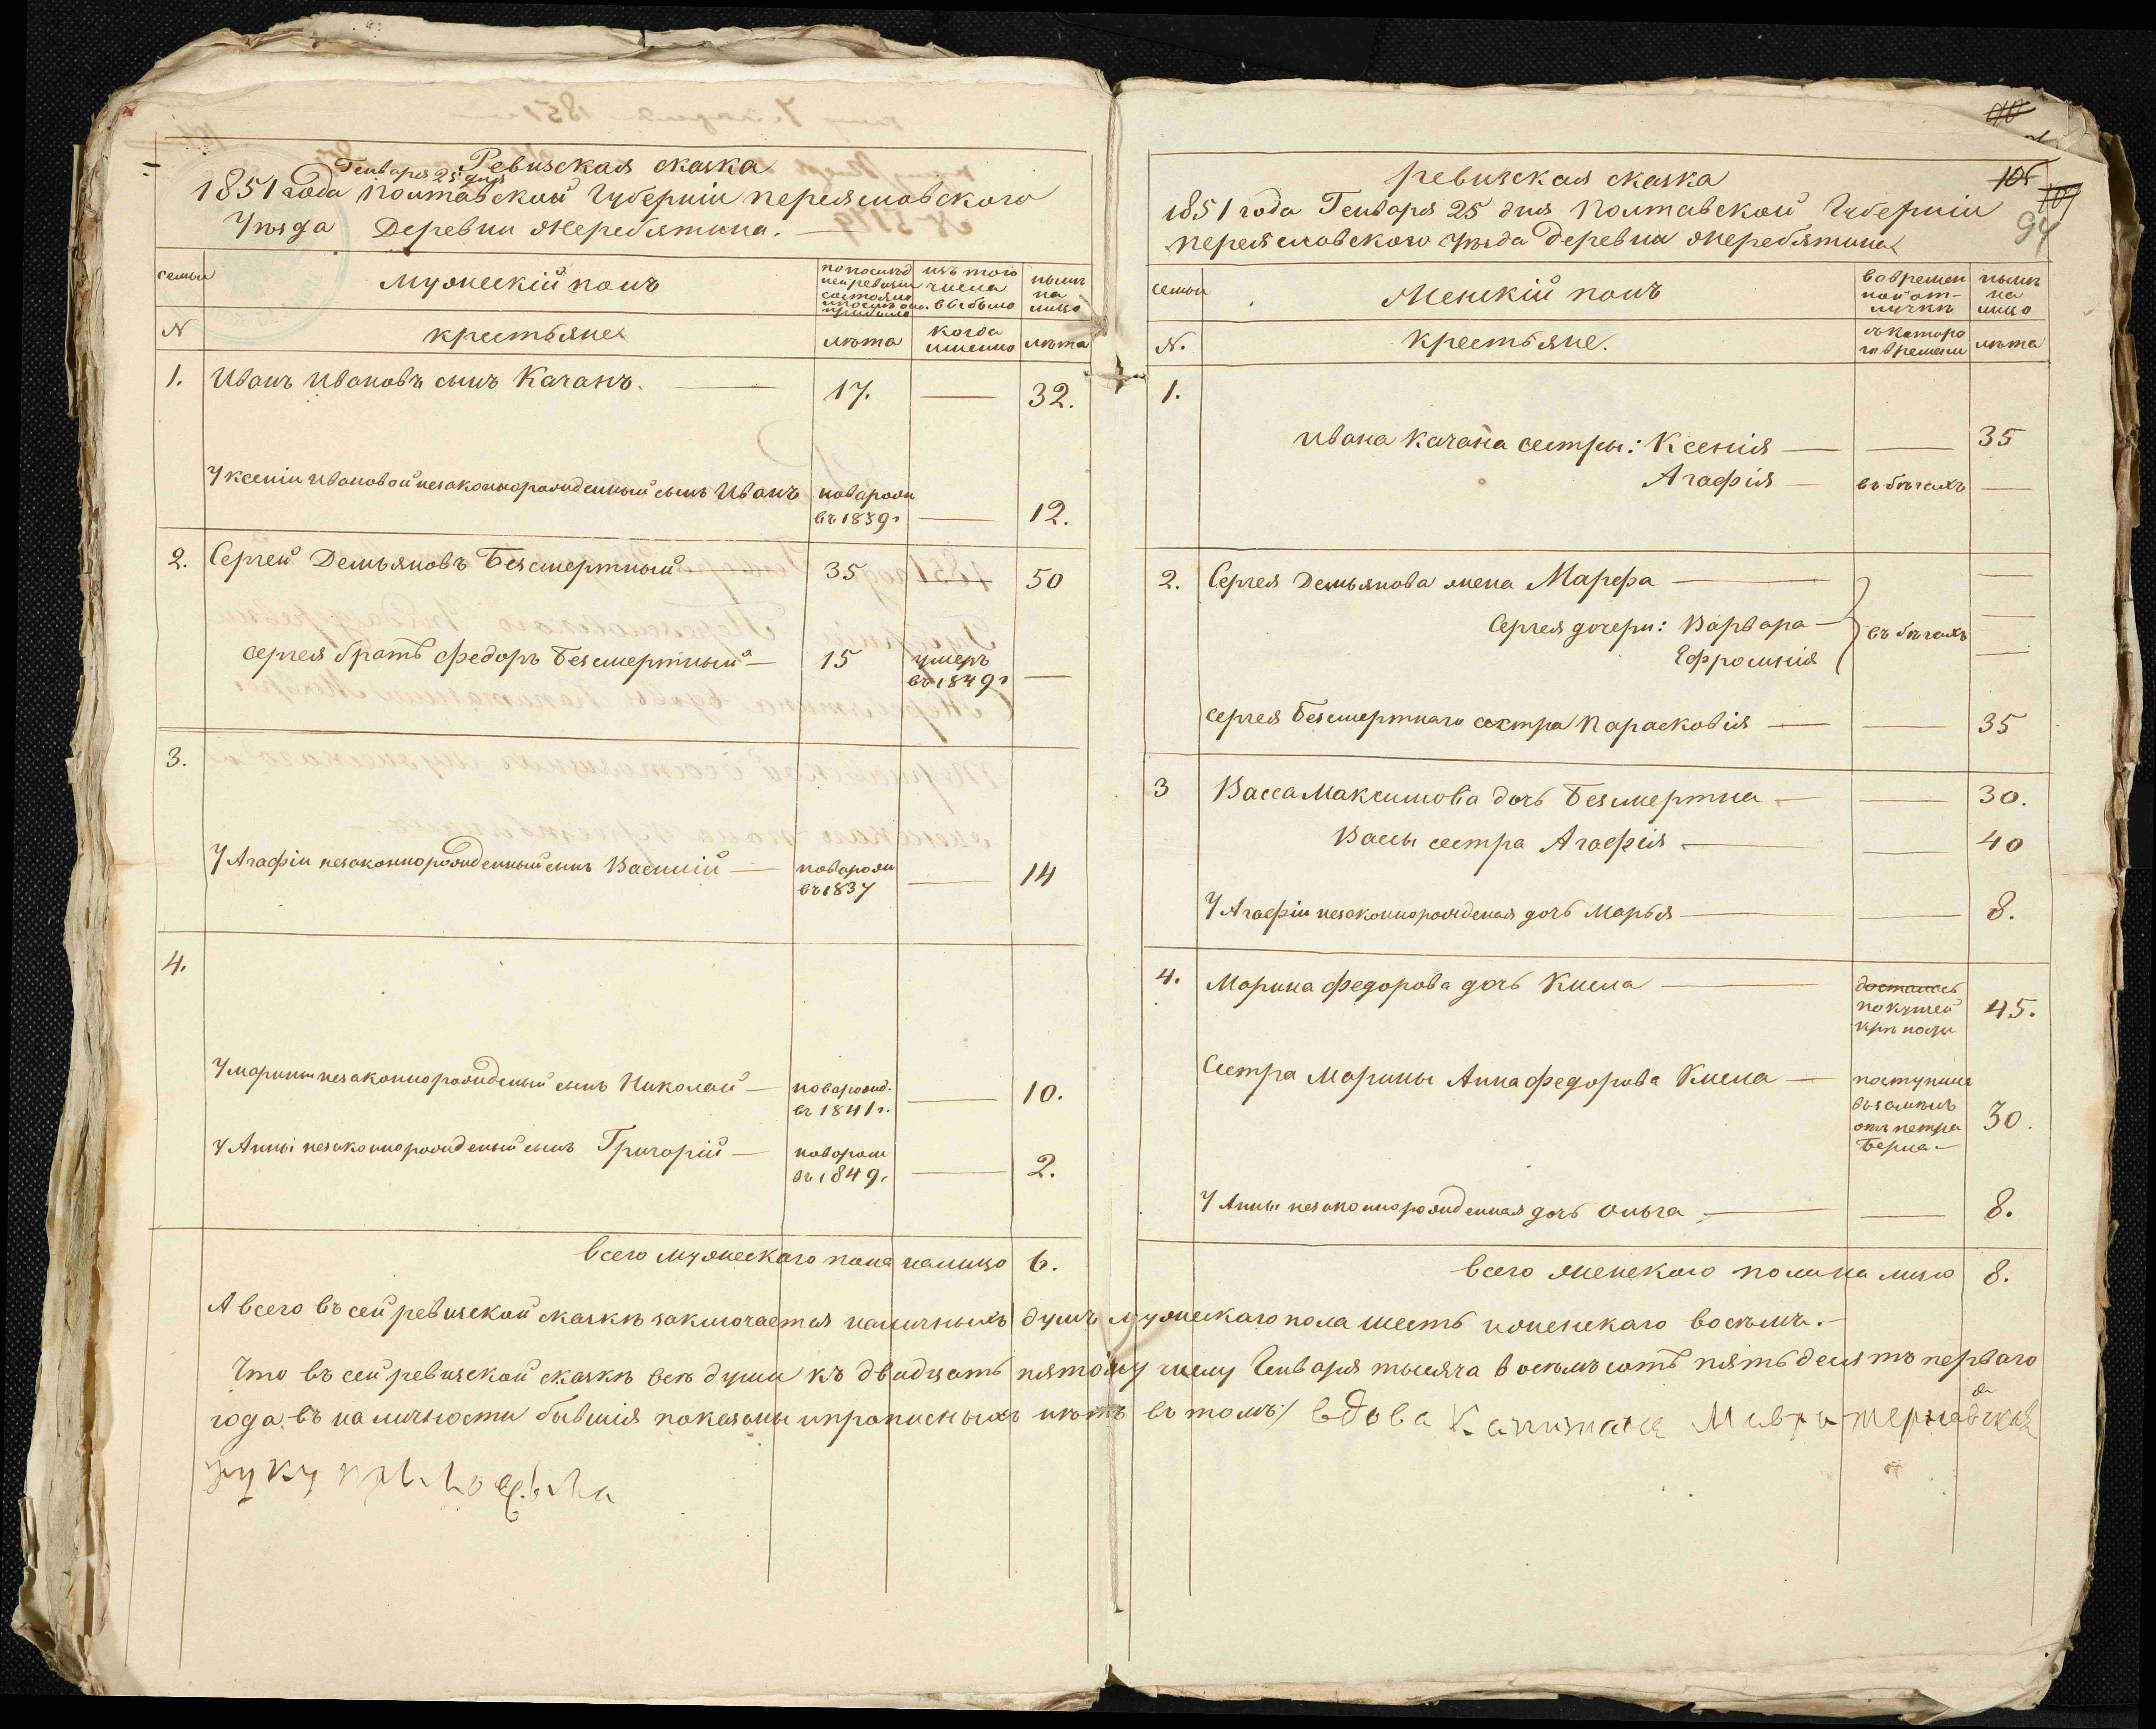 Ревизская сказка
Генваря 25 дня
1851 года Полтавской Губерніи переяславского
Уезда Деревни Жеребятина.
семьи
Мужескій полъ
по послед
ней ревизіи
состояло
изъ того
числа
выбыло
ныне
на
лицо
N
крестьяне
лета
когда
именно
лета
1. Иванъ Ивановъ сынъ Качанъ. 17. 32.
У Ксеніи Ивановой незаконнорожденный сынъ Иванъ новарожд
въ 1839г 12.
2. Сергей Демьяновъ Безсмертный 35 50
Сергея братъ Федоръ Безсмертный 15 умеръ
въ 1849г
3.
У Агафіи незаконнорожденный сынъ Василій новарож
въ 1837 14
4.
У Марины незаконнорожденый сынъ Николай новарожд.
въ 1841г. 10.
У Анны незаконнорожденый сынъ Григорій новарож
въ 1849. 2.
всего мужескаго пола налицо 6.
ревизская сказка
1851 года Генваря 25 дня Полтавской Губерніи
переяславского уезда деревни жеребятина
90
105
107
94
семьи
Женскій полъ
во времен
ной от-
лучке
ныне
на
лицо
N.
крестьяне.
съ котора
го времени
лета
1.
Ивана Качана сестры: Ксенія 35
Агафія въ бегахъ
2. Сергея Демьянова жена Марфа
Сергея дочери: Варвара въ бегахъ
Ефросинія
Сергея Безсмертнаго сестра Парасковія 35
3 Васса Максимова дочь Безсмертна 30.
Вассы сестра Агафія 40
У Агафіи незаконнорожденая дочь Марья 8.
4. Марина Федорова дочь Кмела досталась
по купчей
крепости 45.
Сестра Марины Анна Федорова Кмела поступила
взаменъ
отъ петра
Берла 30.
У Анны незаконнорожденная дочь Ольга 8.
всего женского пола на лицо 8.
А всего въ сей ревизской сказке заключается наличныхъ душъ мужескаго пола шесть и женскаго восемь.
Что въ сей ревизской сказке все души къ двадцать пятому числу Генваря тысяча восемьсотъ пятьдесятъ перваго
года въ наличности бывшія показаны и прописныхъ нетъ въ томъ / вдова Капитана Мавра
руку приложила